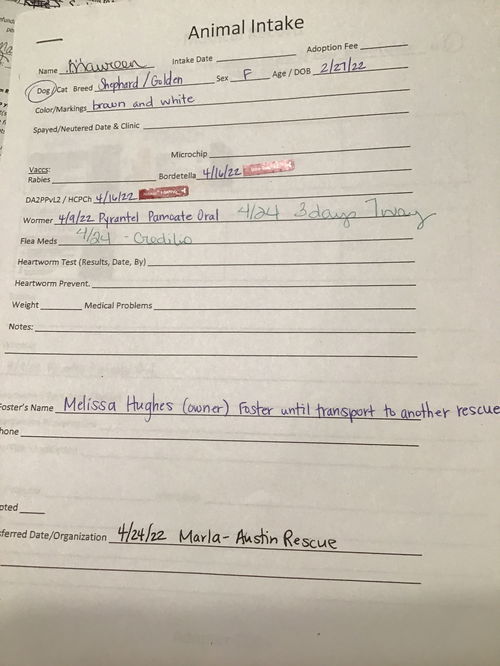 Animal Intake
Name Maureen Intake Date Adoption Fee
Dog/Cat Breed Shephard/Golden Sex F Age / DOB 2/27/22
Color/Markings brown and white
Spayed/Neutered Date & Clinic
Microchip
Vaccs:
Rabies Bordetella 4/16/22
DA2PPvL2 / HCPCh 4/16/22
Wormer 4/9/22 Pyrantel Pamoate Oral 4/24 3 days
Flea Meds 4/24 - Credilio
Heartworm Test (Results, Date, By)
Heartworm Prevent.
Weight Medical Problems
Notes:
Foster's Name Melissa Hughes (owner) Foster until transport to another rescue
hone
pted
sferred Date/Organization 4/24/22 Marla- Austin Rescue